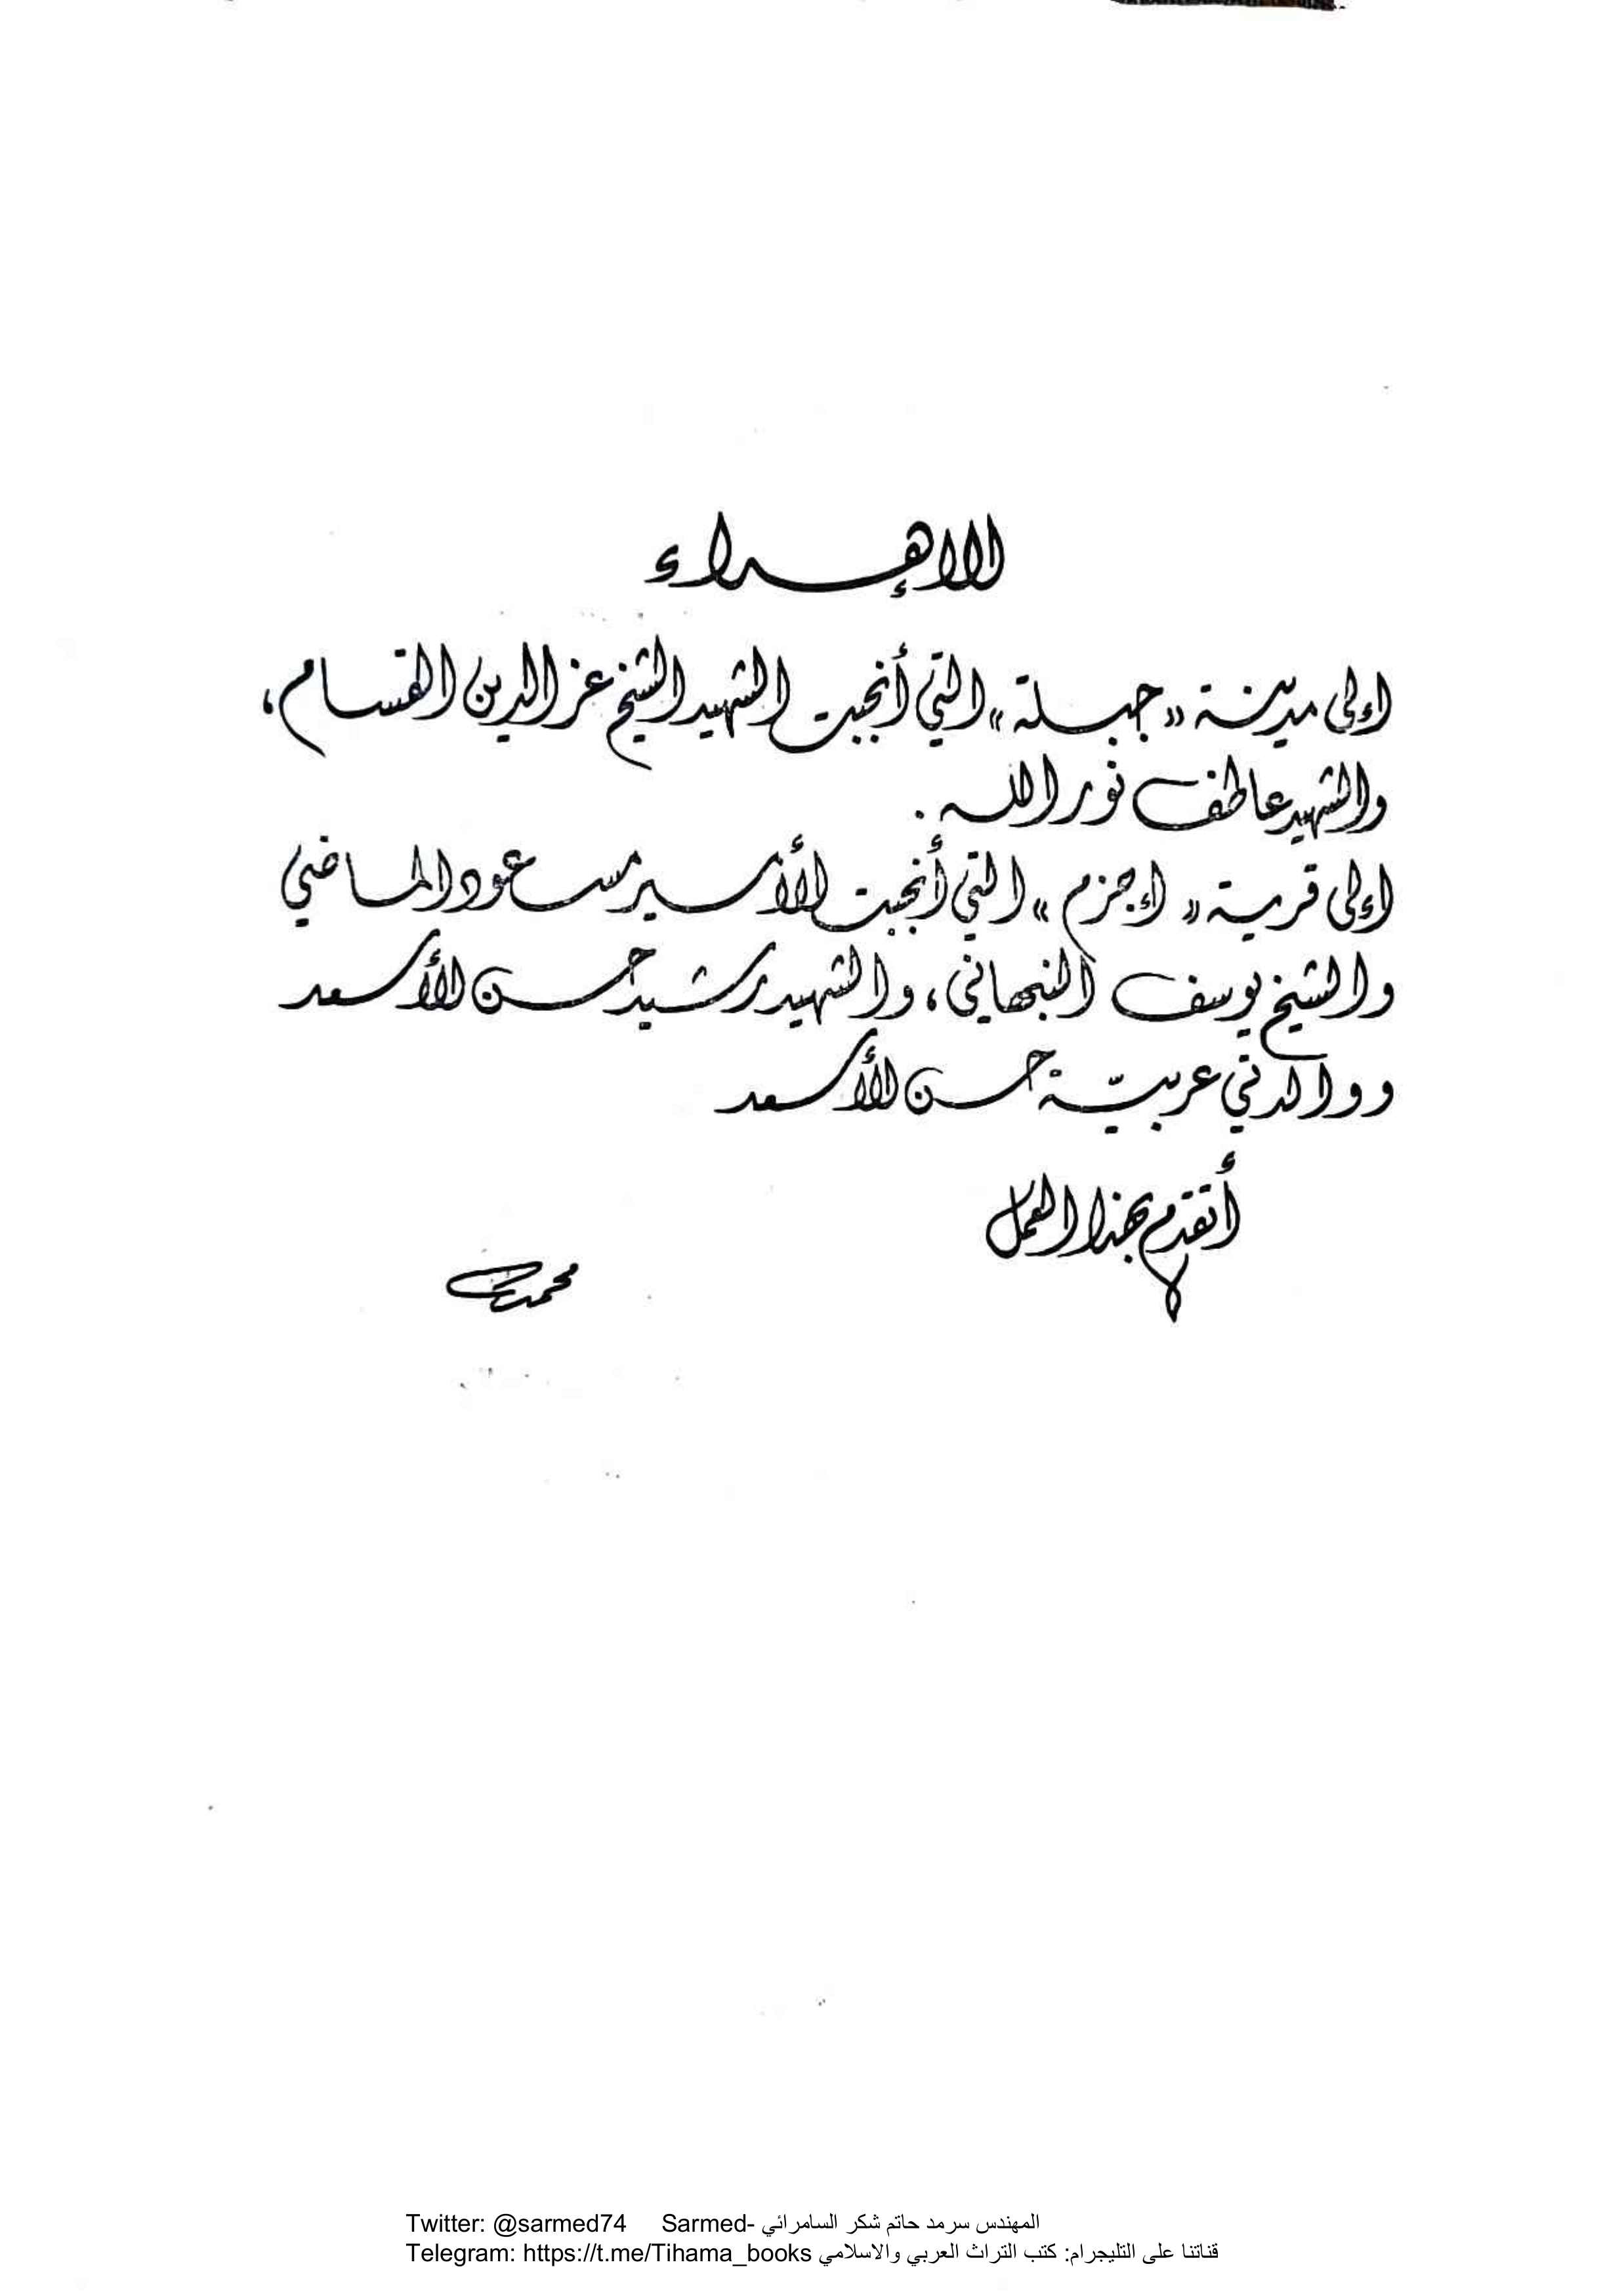 الإهداء
إلى مدينة «جبلة» التي أنجبت الشهيد الشيخ عز الدين القسام،
والشهيد عاطف نور الله.
إلى قرية «إجزم» التي أنجبت الأسير مسعود الماضي
والشيخ يوسف النبهاني، والشهيد رشيد حسن الأسعد
ووالدتي عربيّة حسن الأسعد
أتقدم بهذا العمل
محمد
Twitter: @sarmed74 Sarmed- المهندس سرمد حاتم شكر السامرائي
Telegram: https://t.me/Tihama_books قناتنا على التليجرام: كتب التراث العربي والاسلامي